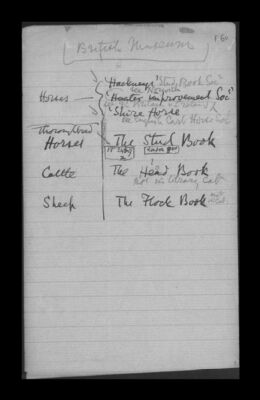 [British Museum]
Hackney "Stud Book Soc"
see Norwich
Horses — "Hunter improvement Soc"
"Shire Horse
see English Cart Horse Soc
thoroughbred
Horses The Stud Book
Cattle The Herd Book
not in library Cat
Sheep The Flock Book not in Cat.